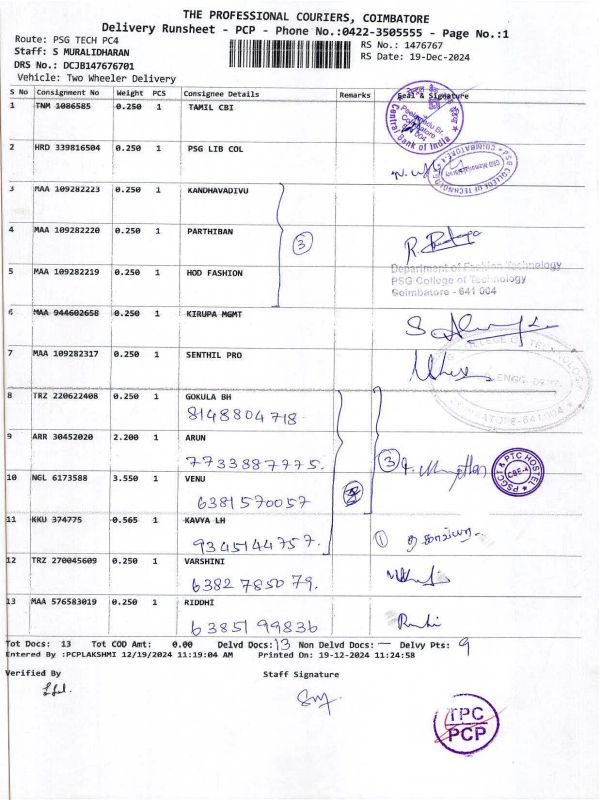 THE PROFESSIONAL COURIERS, COIMBATORE
Delivery Runsheet - PCP - Phone No.:0422-3505555 - Page No.:1
Route: PSG TECH PC4
RS No.: 1476767
Staff: S MURALIDHARAN
RS Date: 19-Dec-2024
DRS No.: DCJB147676701
Vehicle: Two Wheeler Delivery
S No Consignment No Weight PCS Consignee Details Remarks Seal & Signature
1 TNM 1086585 0.250 1 TAMIL CBI
Central Bank of India
Coimbatore
2 HRD 339816504 0.250 1 PSG LIB COL
PSG COLLEGE OF TECHNOLOGY
COIMBATORE-4
3 MAA 109282223 0.250 1 KANDHAVADIVU
4 MAA 109282220 0.250 1 PARTHIBAN
3
5 MAA 109282219 0.250 1 HOD FASHION
Department of Fashion Technology
PSG College of Technology
Coimbatore - 641 004
6 MAA 944602658 0.250 1 KIRUPA MGMT
7 MAA 109282317 0.250 1 SENTHIL PRO
COLLEGE OF TECHNOLOGY
ENGG. DEPT.
COIMBATORE-641 004
8 TRZ 220622408 0.250 1 GOKULA BH
8148804718
9 ARR 30452020 2.200 1 ARUN
7733887775.
3
10 NGL 6173588 3.550 1 VENU
6381570057
PSGCT & PTC HOSTEL
CBE-4
11 KKU 374775 0.565 1 KAVYA LH
9345144757.
1
12 TRZ 270045609 0.250 1 VARSHINI
6382785079.
13 MAA 576583019 0.250 1 RIDDHI
6385199836
Tot Docs: 13 Tot COD Amt: 0.00 Delvd Docs:13 Non Delvd Docs: — Delvy Pts: 9
Entered By :PCPLAKSHMI 12/19/2024 11:19:04 AM Printed On: 19-12-2024 11:24:58
Verified By Staff Signature
TPC
PCP